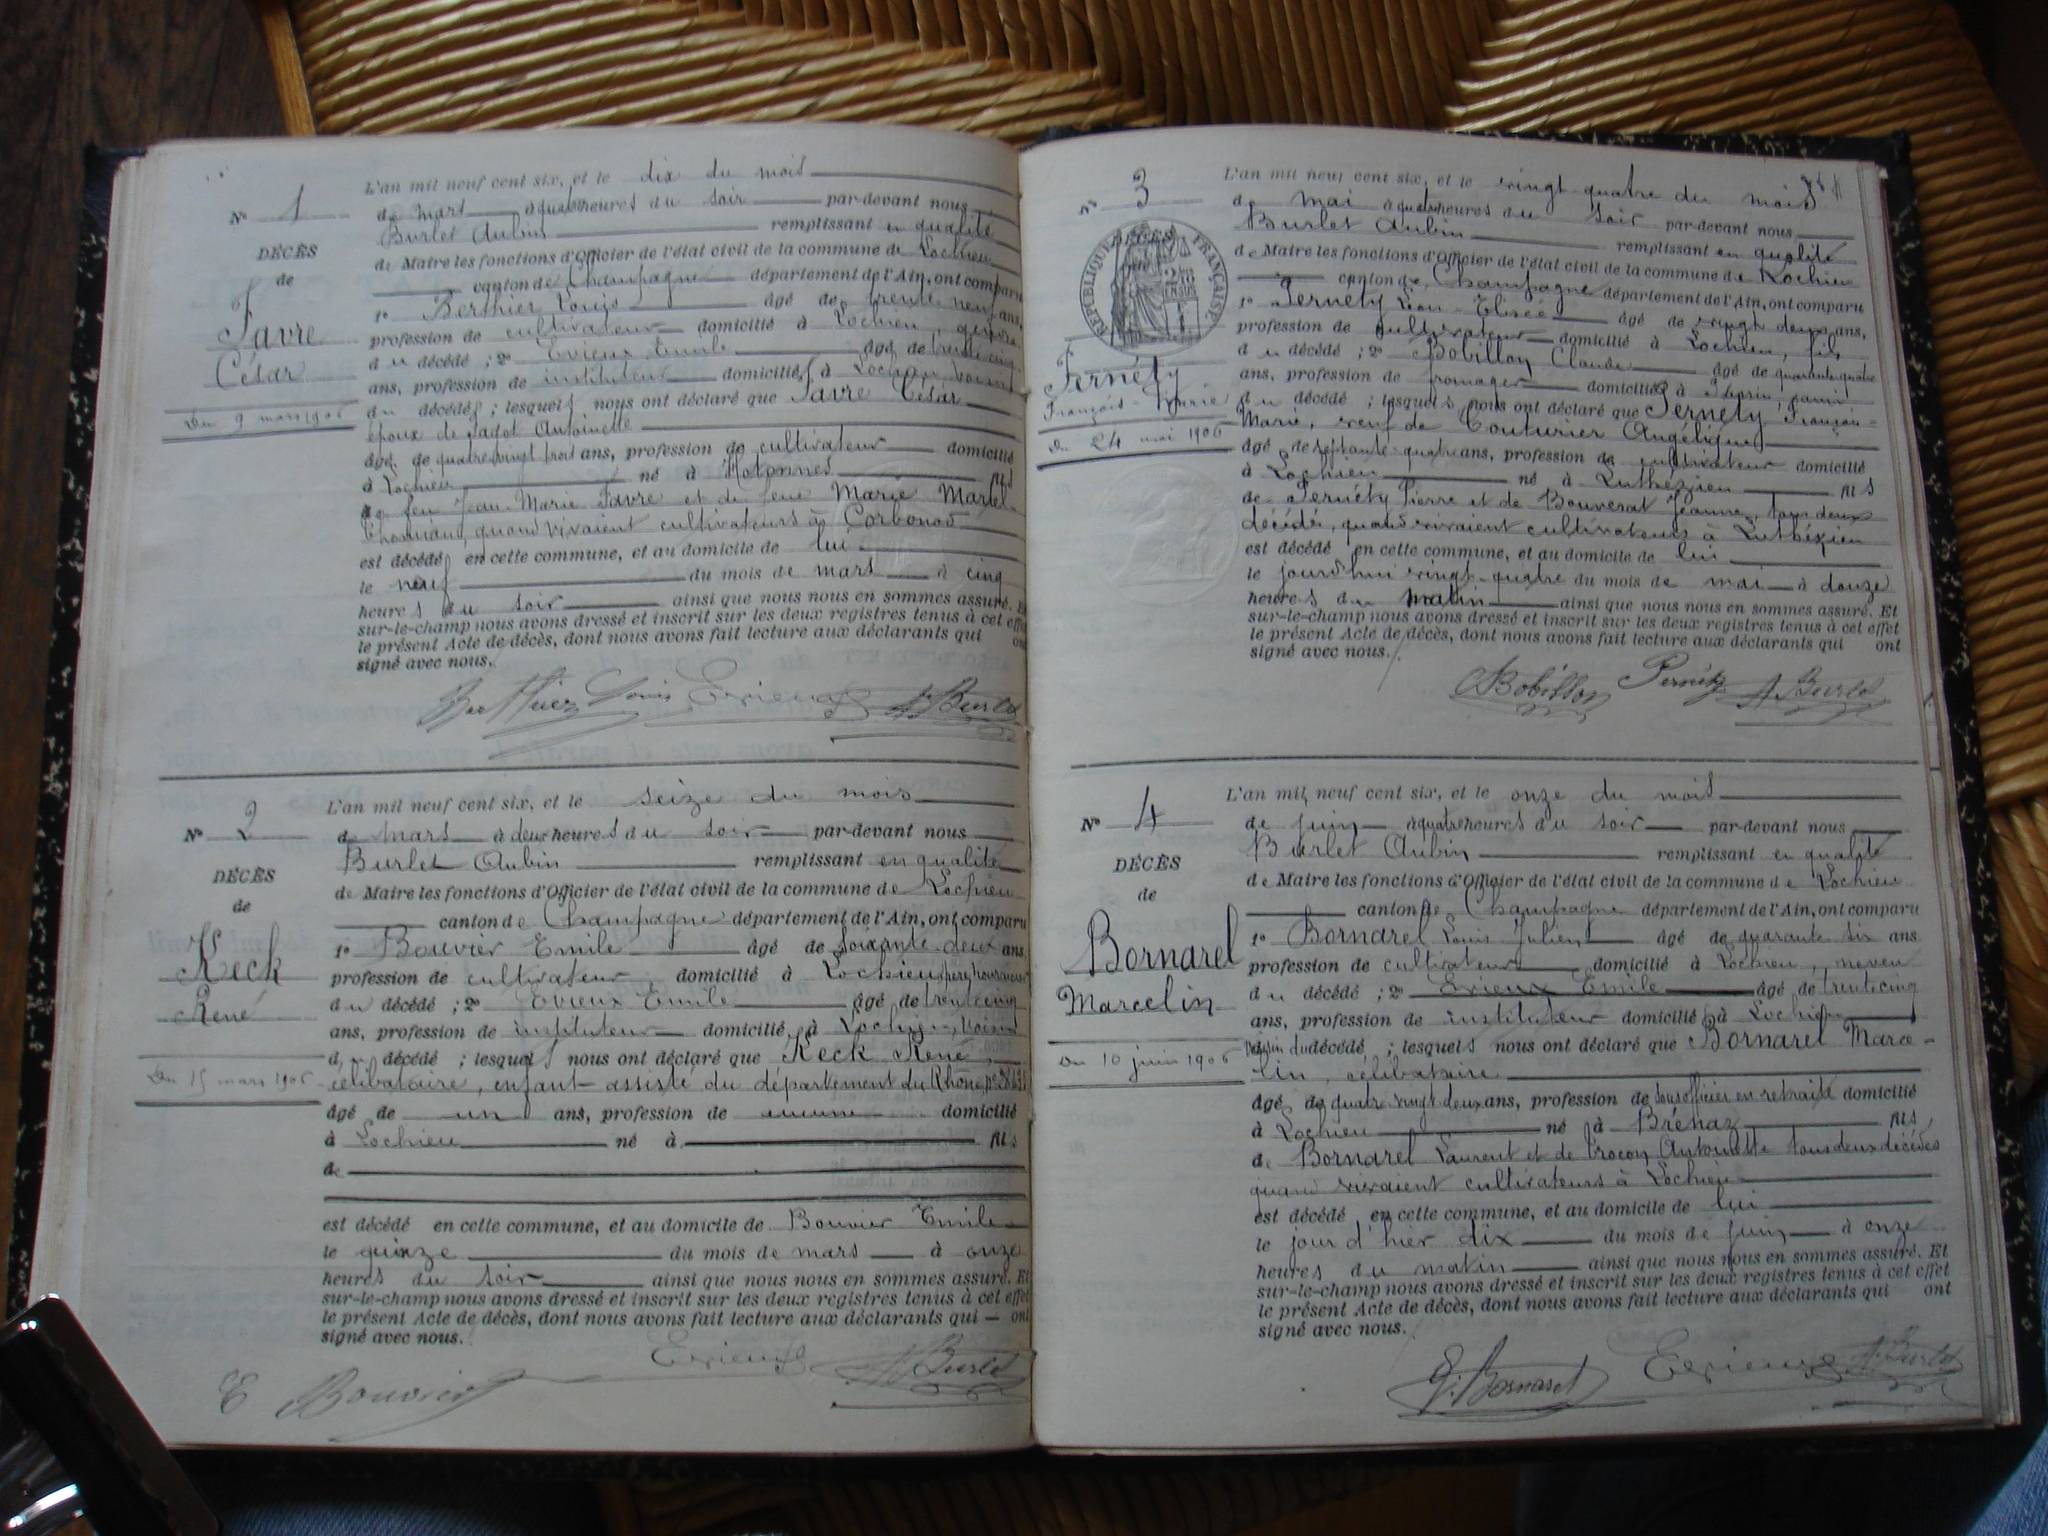 N° 1
DÉCÈS
de
Favre
César
Du 9 mars 1906
L'an mil neuf cent six, et le dix du mois
de mars à quatre heures du soir par-devant nous
Burlet Aubin remplissant en qualité
de Maire les fonctions d'Officier de l'état civil de la commune de Lochieu
canton de Champagne département de l'Ain, ont comparu
1° Berthier Louis âgé de trente neuf ans,
profession de cultivateur domicilié à Lochieu, gendre
du décédé ; 2° Evieux Emile âgé de trente cinq
ans, profession de instituteur domiciliés à Lochieu, voisin
du décédé ; lesquels nous ont déclaré que Favre César
époux de Jagot Antoinette
âgé de quatre vingt trois ans, profession de cultivateur domicilié
à Lochieu né à Hotonnes fils
de feu Jean-Marie Favre et de feue Marie Martel
quand vivaient cultivateurs à Corbonod
est décédé en cette commune, et au domicile de lui
le neuf du mois de mars à cinq
heures du soir ainsi que nous nous en sommes assuré. Et
sur-le-champ nous avons dressé et inscrit sur les deux registres tenus à cet effet
le présent Acte de décès, dont nous avons fait lecture aux déclarants qui ont
signé avec nous.
Berthier Louis Evieux A. Burlet
N° 2
DÉCÈS
de
Keck
René
Du 15 mars 1906
L'an mil neuf cent six, et le seize du mois
de mars à deux heures du soir par-devant nous
Burlet Aubin remplissant en qualité
de Maire les fonctions d'Officier de l'état civil de la commune de Lochieu
canton de Champagne département de l'Ain, ont comparu
1° Bouvier Emile âgé de soixante deux ans,
profession de cultivateur domicilié à Lochieu, père nourricier
du décédé ; 2° Evieux Emile âgé de trente cinq
ans, profession de instituteur domicilié à Lochieu, voisin
du décédé ; lesquels nous ont déclaré que Keck René,
célibataire, enfant assisté du département du Rhône,
âgé de un ans, profession de aucune domicilié
à Lochieu né à fils
de
est décédé en cette commune, et au domicile de Bouvier Emile
le quinze du mois de mars à onze
heures du soir ainsi que nous nous en sommes assuré. Et
sur-le-champ nous avons dressé et inscrit sur les deux registres tenus à cet effet
le présent Acte de décès, dont nous avons fait lecture aux déclarants qui ont
signé avec nous.
E Bouvier Evieux A. Burlet
N° 3
RÉPUBLIQUE FRANÇAISE
Pernéty
François-Marie
Du 24 mai 1906
L'an mil neuf cent six, et le vingt quatre du mois
de mai à quatre heures du soir par-devant nous
Burlet Aubin remplissant en qualité
de Maire les fonctions d'Officier de l'état civil de la commune de Lochieu
canton de Champagne département de l'Ain, ont comparu
1° Pernéty Léon-Elisée âgé de vingt deux ans,
profession de cultivateur domicilié à Lochieu, fils
du décédé ; 2° Bobillon Claude âgé de quarante quatre
ans, profession de fromager domiciliés à
du décédé ; lesquels nous ont déclaré que Pernéty François-
Marie, veuf de Couturier Angélique
âgé de septante-quatre ans, profession de cultivateur domicilié
à Lochieu né à Luthézieu fils
de Pernéty Pierre et de Bouverat Jeanne, tous deux
décédés, quand vivaient cultivateurs à Luthézieu
est décédé en cette commune, et au domicile de lui
le jourd'hui vingt-quatre du mois de mai à douze
heures du matin ainsi que nous nous en sommes assuré. Et
sur-le-champ nous avons dressé et inscrit sur les deux registres tenus à cet effet
le présent Acte de décès, dont nous avons fait lecture aux déclarants qui ont
signé avec nous.
C Bobillon Pernéty A. Burlet
N° 4
DÉCÈS
de
Bornarel
Marcelin
Du 10 juin 1906
L'an mil neuf cent six, et le onze du mois
de juin à quatre heures du soir par-devant nous
Burlet Aubin remplissant en qualité
de Maire les fonctions d'Officier de l'état civil de la commune de Lochieu
canton de Champagne département de l'Ain, ont comparu
1° Bornarel Louis Julien âgé de quarante six ans
profession de cultivateur domicilié à Lochieu, neveu
du décédé ; 2° Evieux Emile âgé de trente cinq
ans, profession de instituteur domicilié à Lochieu
voisin du décédé ; lesquels nous ont déclaré que Bornarel Marce-
lin, célibataire
âgé de quatre vingt deux ans, profession de sous officier en retraite domicilié
à Lochieu né à Brénaz fils
de Bornarel Laurent et de Antoinette tous deux décédés
quand vivaient cultivateurs à Lochieu
est décédé en cette commune, et au domicile de lui
le jour d'hier dix du mois de juin à onze
heures du matin ainsi que nous nous en sommes assuré. Et
sur-le-champ nous avons dressé et inscrit sur les deux registres tenus à cet effet
le présent Acte de décès, dont nous avons fait lecture aux déclarants qui ont
signé avec nous.
Bornarel Evieux A. Burlet